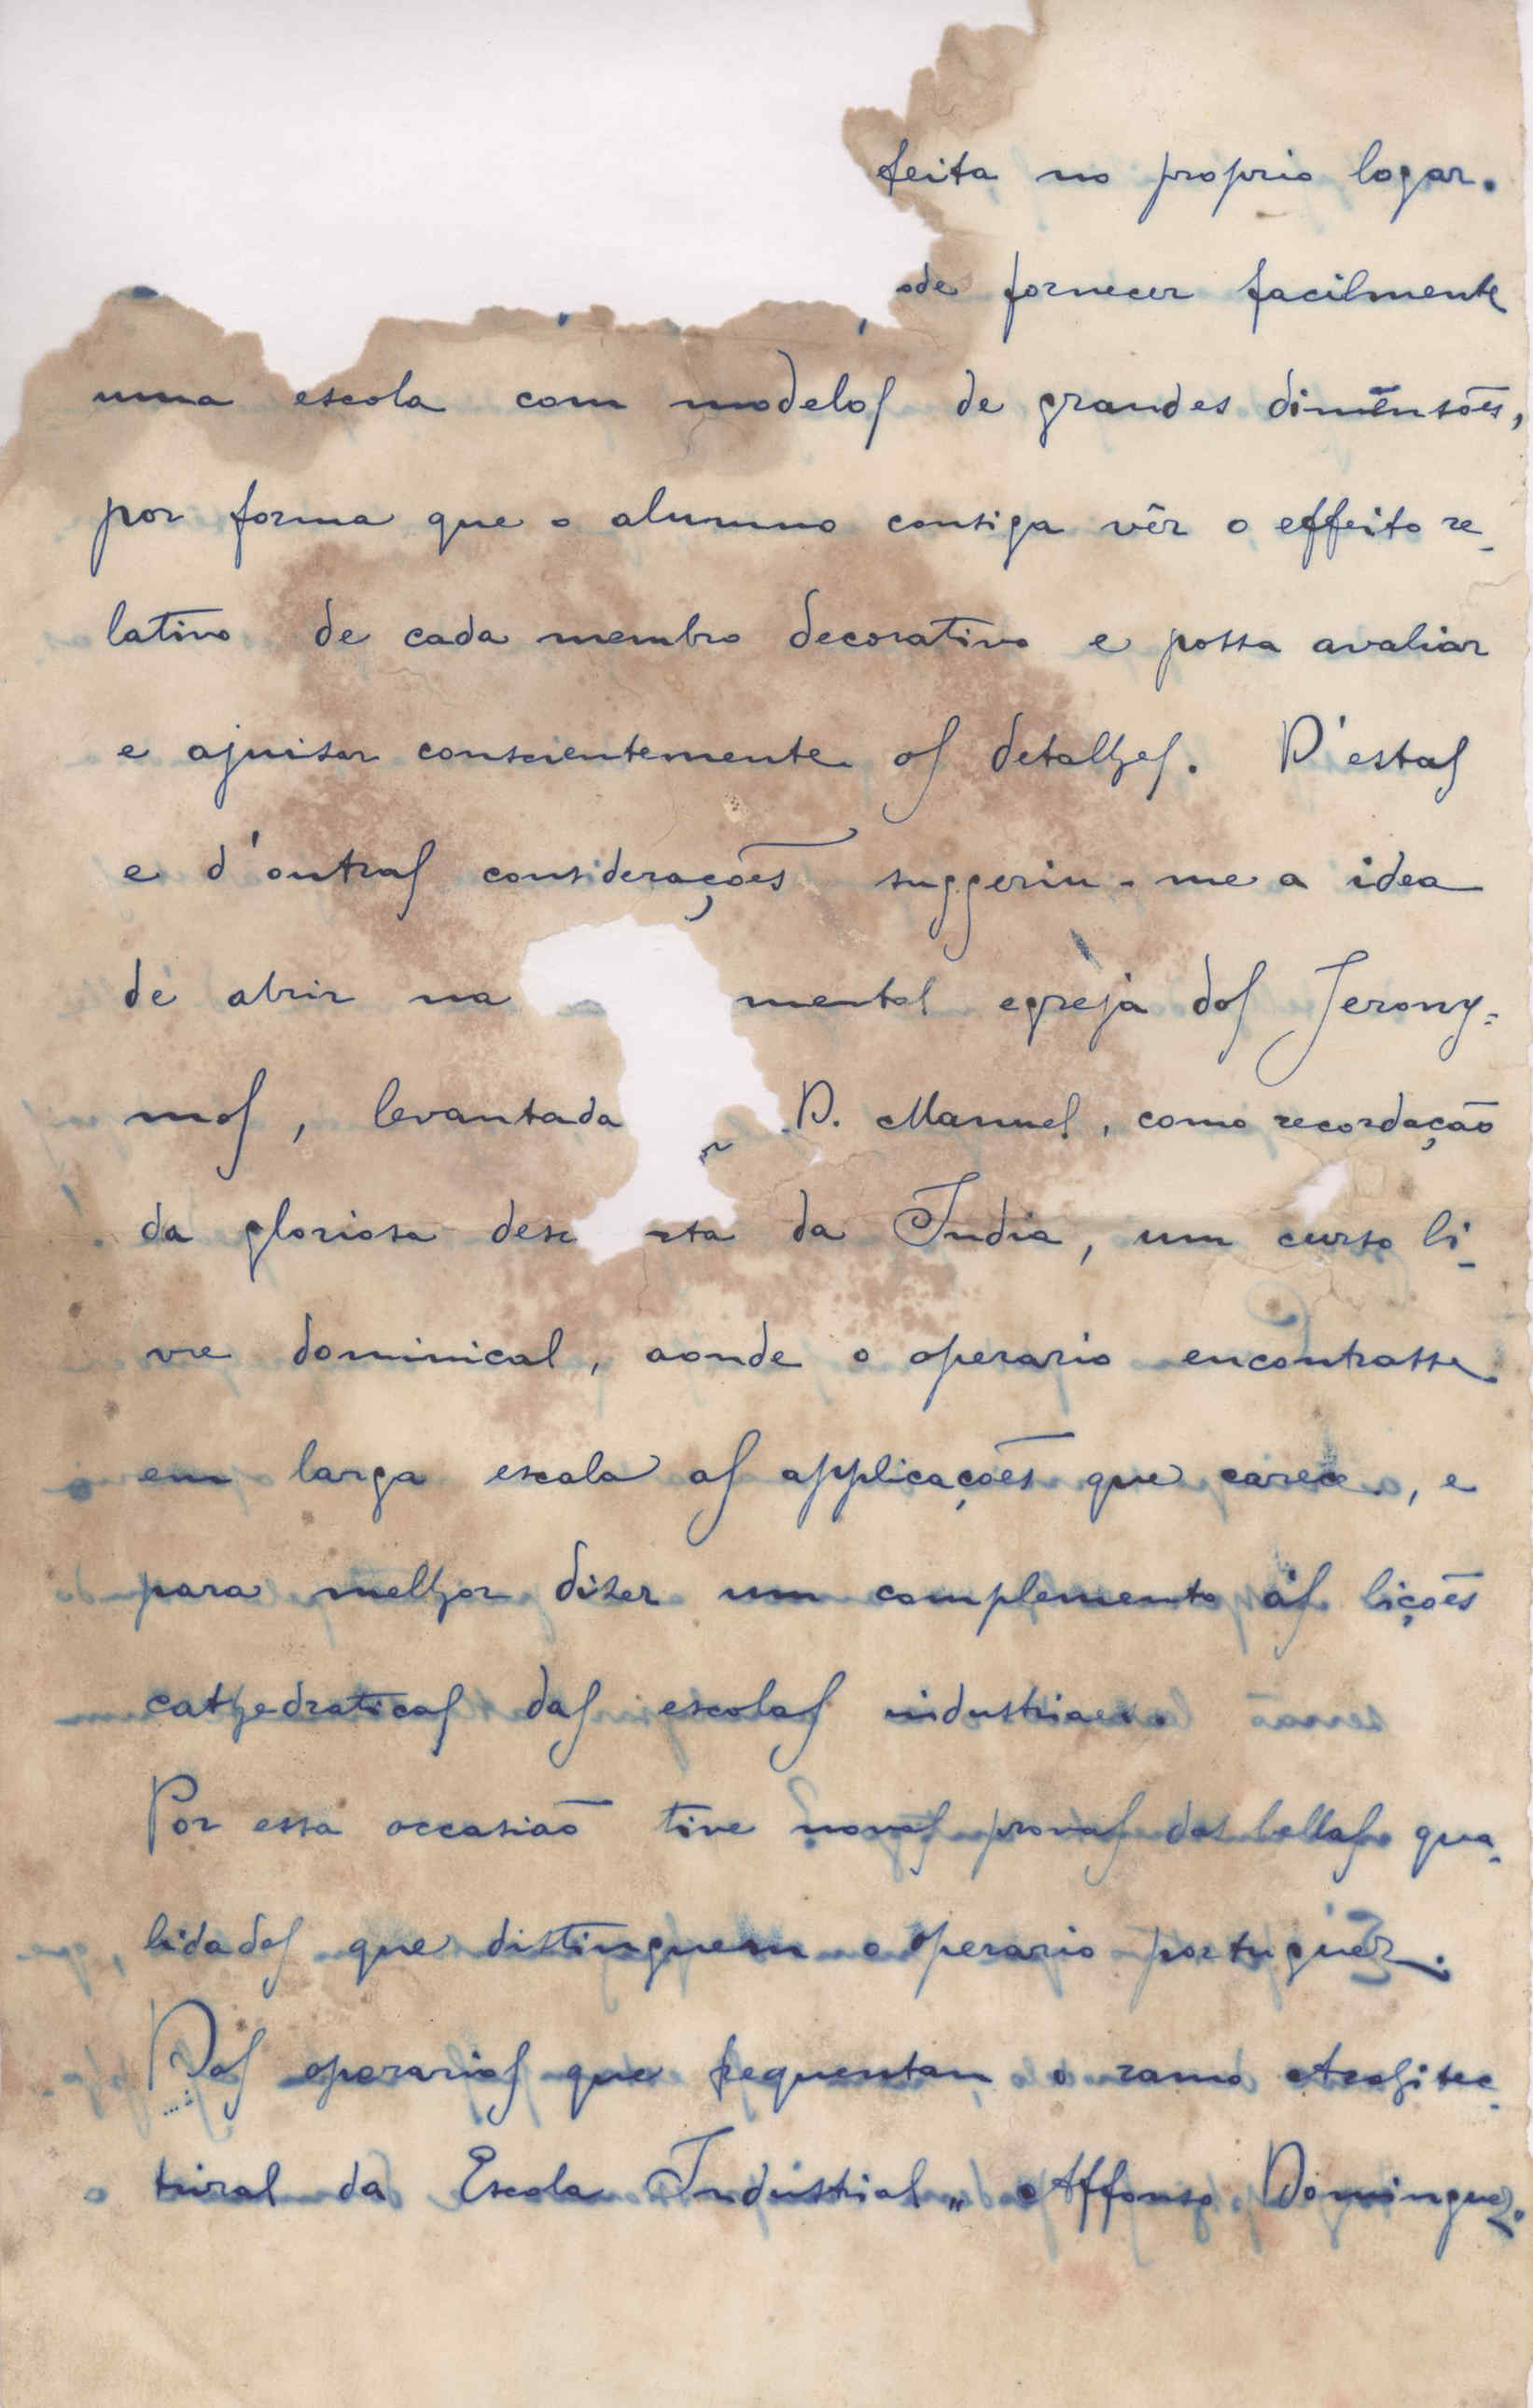 feita no proprio logar.
ode fornecer facilmente
uma escola com modelos de grandes dimensões,
por forma que o alumno consiga vêr o effeito re-
lativo de cada membro decorativo e possa avaliar
e ajuisar conscientemente os detalhes. D'estas
e d'outras considerações suggeriu-me a idea
de abrir na mental egreja dos Jerony=
mos, levantada D. Manuel, como recordação
da gloriosa desc rta da India, um curso li-
vre dominical, aonde o operario encontrasse
em larga escala as applicações que carece, e
para melhor diser um complemento ás lições
cathedraticas das escolas industriaes.
Por essa occasião tive novas provas das bellas qua-
lidades que distinguem o operario portuguêz.
Dos operarios que frequentam o ramo Architec-
tural da Escola Industrial „ Affonso Domingues.